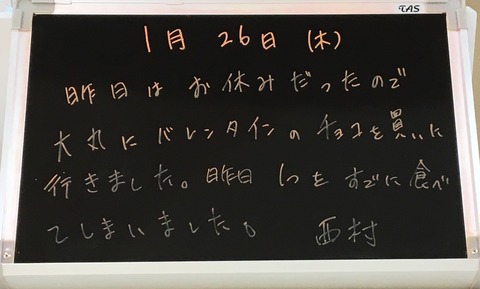 TAS
1月 26日 (木)
昨日は お休みだったので
大丸に バレンタインの チョコを買いに
行きました。昨日 1つを すでに 食べ
てしまいました。 西村